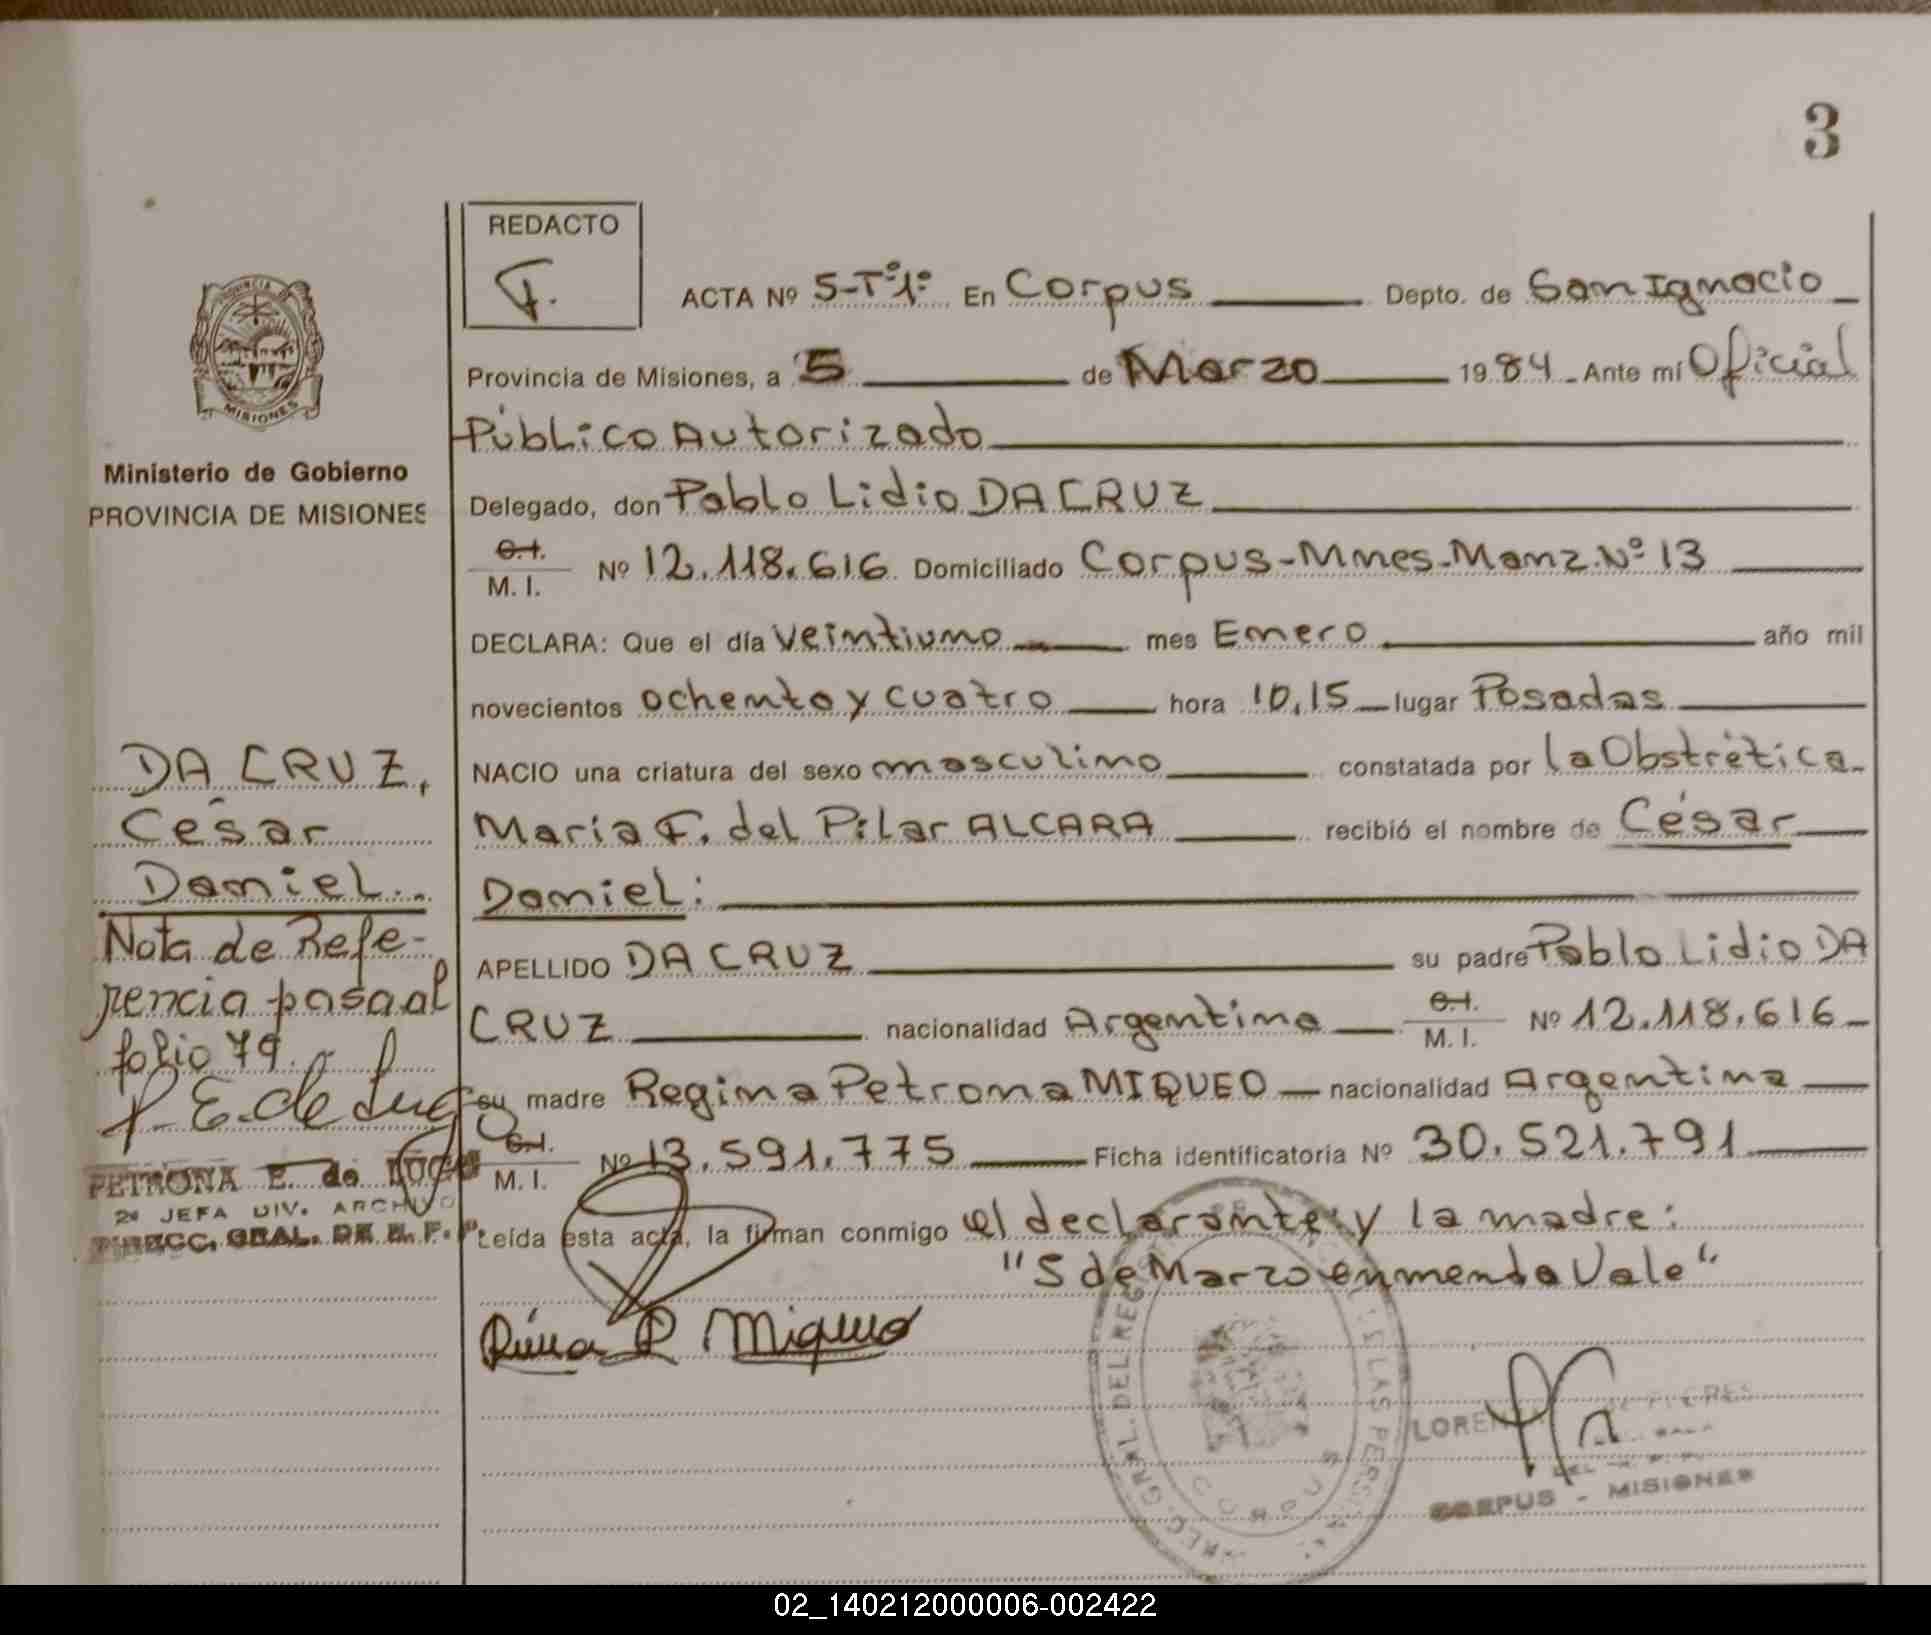 3
REDACTO
F.
ACTA Nº 5-Tº1º En Corpus Depto. de San Ignacio
Provincia de Misiones, a 5 de Marzo 1984 Ante mí Oficial
Público Autorizado
Delegado, don Pablo Lidio DA CRUZ
C.I. M.I. Nº 12.118.616 Domiciliado Corpus-Mnes-Manz.Nº 13
DECLARA: Que el día veintiuno mes Enero año mil
novecientos ochenta y cuatro hora 10,15 lugar Posadas
NACIO una criatura del sexo masculino constatada por la Obstrética
María F. del Pilar ALCARA recibió el nombre de César
Daniel:
APELLIDO DA CRUZ su padre Pablo Lidio DA
CRUZ nacionalidad Argentina C.I. M.I. Nº 12.118.616
su madre Regina Petrona MIQUEO nacionalidad Argentina
C.I. M.I. Nº 13.591.775 Ficha identificatoria Nº 30.521.791
Leída esta acta, la firman conmigo el declarante y la madre:
"5 de Marzo enmenda Vale"
P. Miqueo
PROVINCIA DE
MISIONES
Ministerio de Gobierno
PROVINCIA DE MISIONES
DA CRUZ,
César
Daniel..
Nota de Refe-
rencia pasa al
folio 79.
P. E. de Lugo
PETRONA E. de LUGO
2ª JEFA DIV. ARCHIVO
DIRECC. GRAL. DE R. P.
CORPUS
CORPUS - MISIONES
02_140212000006-002422